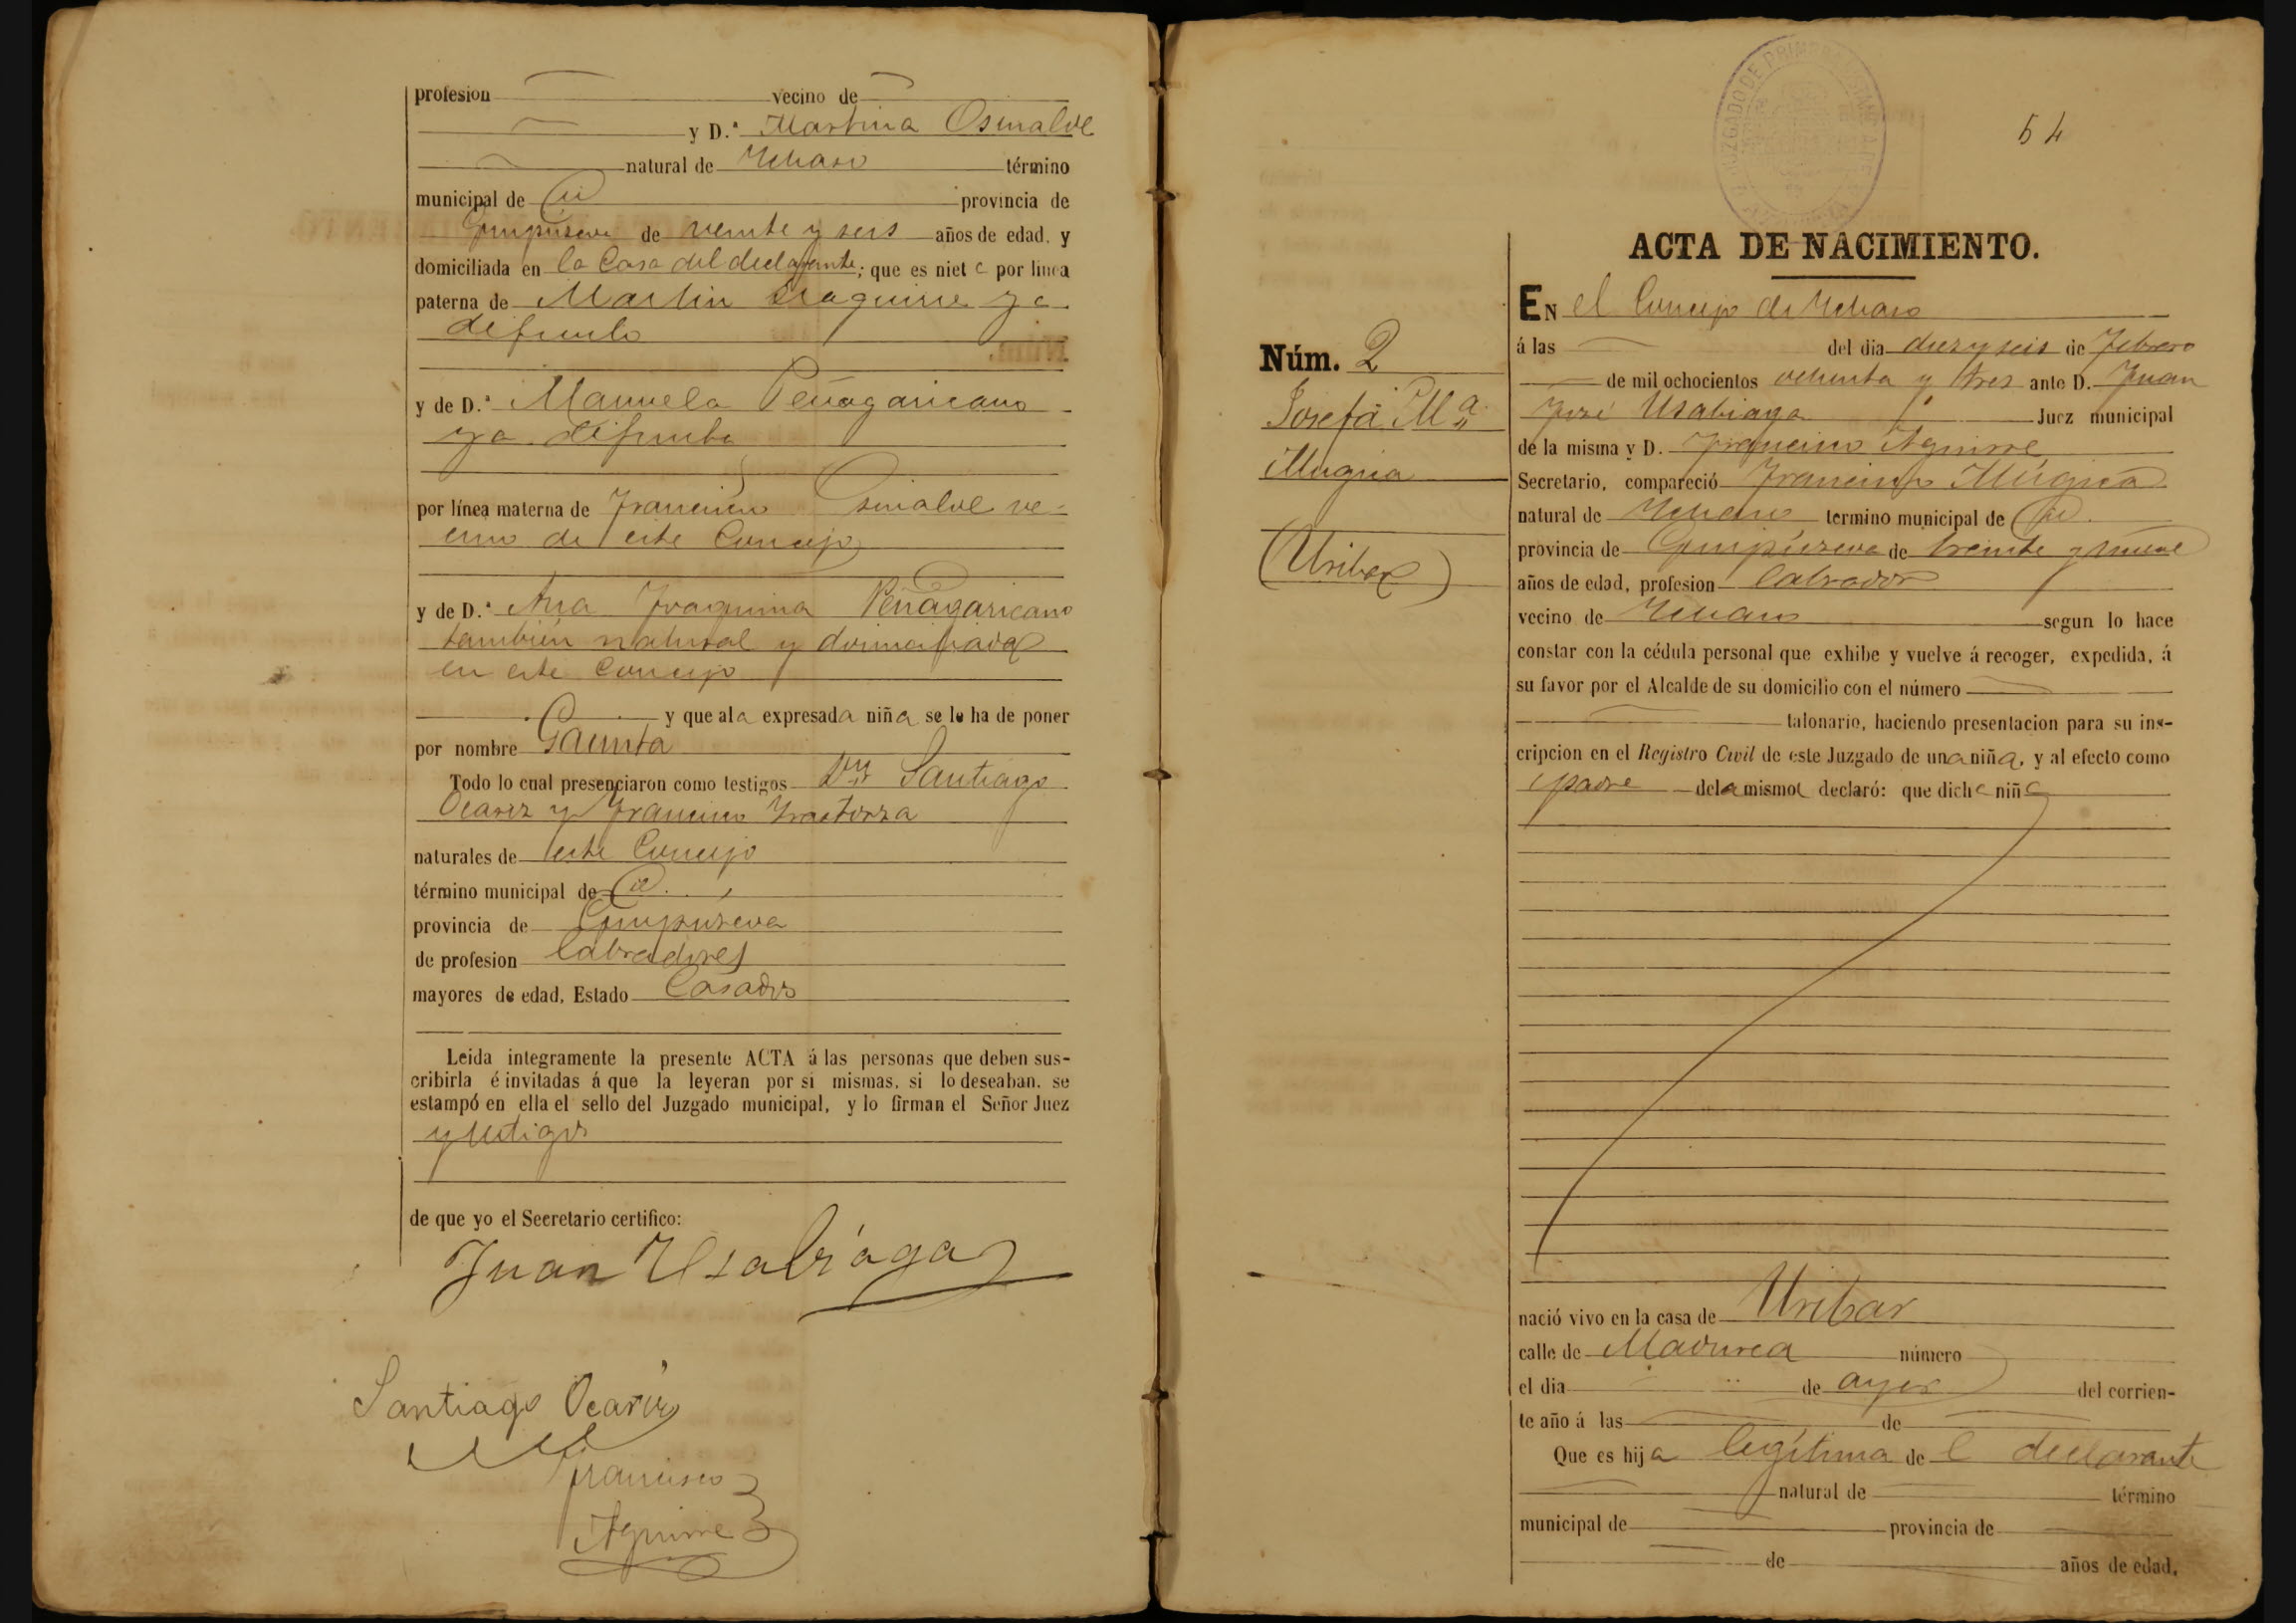 profesion vecino de
y D.ª Martina Osinalde
natural de Ychaso término
municipal de id provincia de
Guipúzcoa de veinte y seis años de edad, y
domiciliada en la Casa del declarante; que es niet a por línea
paterna de Martin Eraquirre ya
difunto
y de D.ª Manuela Peñagaricano
ya difunta
por línea materna de Francisco Osinalde ve-
cino de este Concejo
y de D.ª Ana Joaquina Peñagaricano
también natural y domiciliada
en este Concejo
y que ala expresada niña se le ha de poner
por nombre Jacinta
Todo lo cual presenciaron como testigos Dn Santiago
Ocariz y Francisco
naturales de este Concejo
término municipal de id.
provincia de Guipúzcoa
de profesion labradores
mayores de edad, Estado Casados
Leida integramente la presente ACTA á las personas que deben sus-
cribirla é invitadas á que la leyeran por si mismas, si lo deseaban, se
estampó en ella el sello del Juzgado municipal, y lo firman el Señor Juez
y testigos
de que yo el Secretario certifico:
Juan Usabiaga
Santiago Ocariz
Francisco
Aguirre
JUZGADO DE PRIMERA
54
ACTA DE NACIMIENTO.
Núm. 2
Josefa Mª
Mugica
(Uribar)
EN el Concejo de Ychaso
á las del dia diez y seis de Febrero
de mil ochocientos ochenta y tres ante D. Juan
José Usabiaga Juez municipal
de la misma y D. Francisco Aguirre
Secretario, compareció Francisco Múgica
natural de Ychaso termino municipal de id.
provincia de Guipúzcoa de treinta y nueve
años de edad, profesion labrador
vecino de Ychaso segun lo hace
constar con la cédula personal que exhibe y vuelve á recoger, expedida, á
su favor por el Alcalde de su domicilio con el número
talonario, haciendo presentacion para su ins-
cripcion en el Registro Civil de este Juzgado de una niña, y al efecto como
padre dela misma declaró: que dicha niña
nació vivo en la casa de Uribar
calle de número
el dia de ayer del corrien-
te año á las de
Que es hija legítima de l declarante
natural de término
municipal de provincia de
de años de edad,